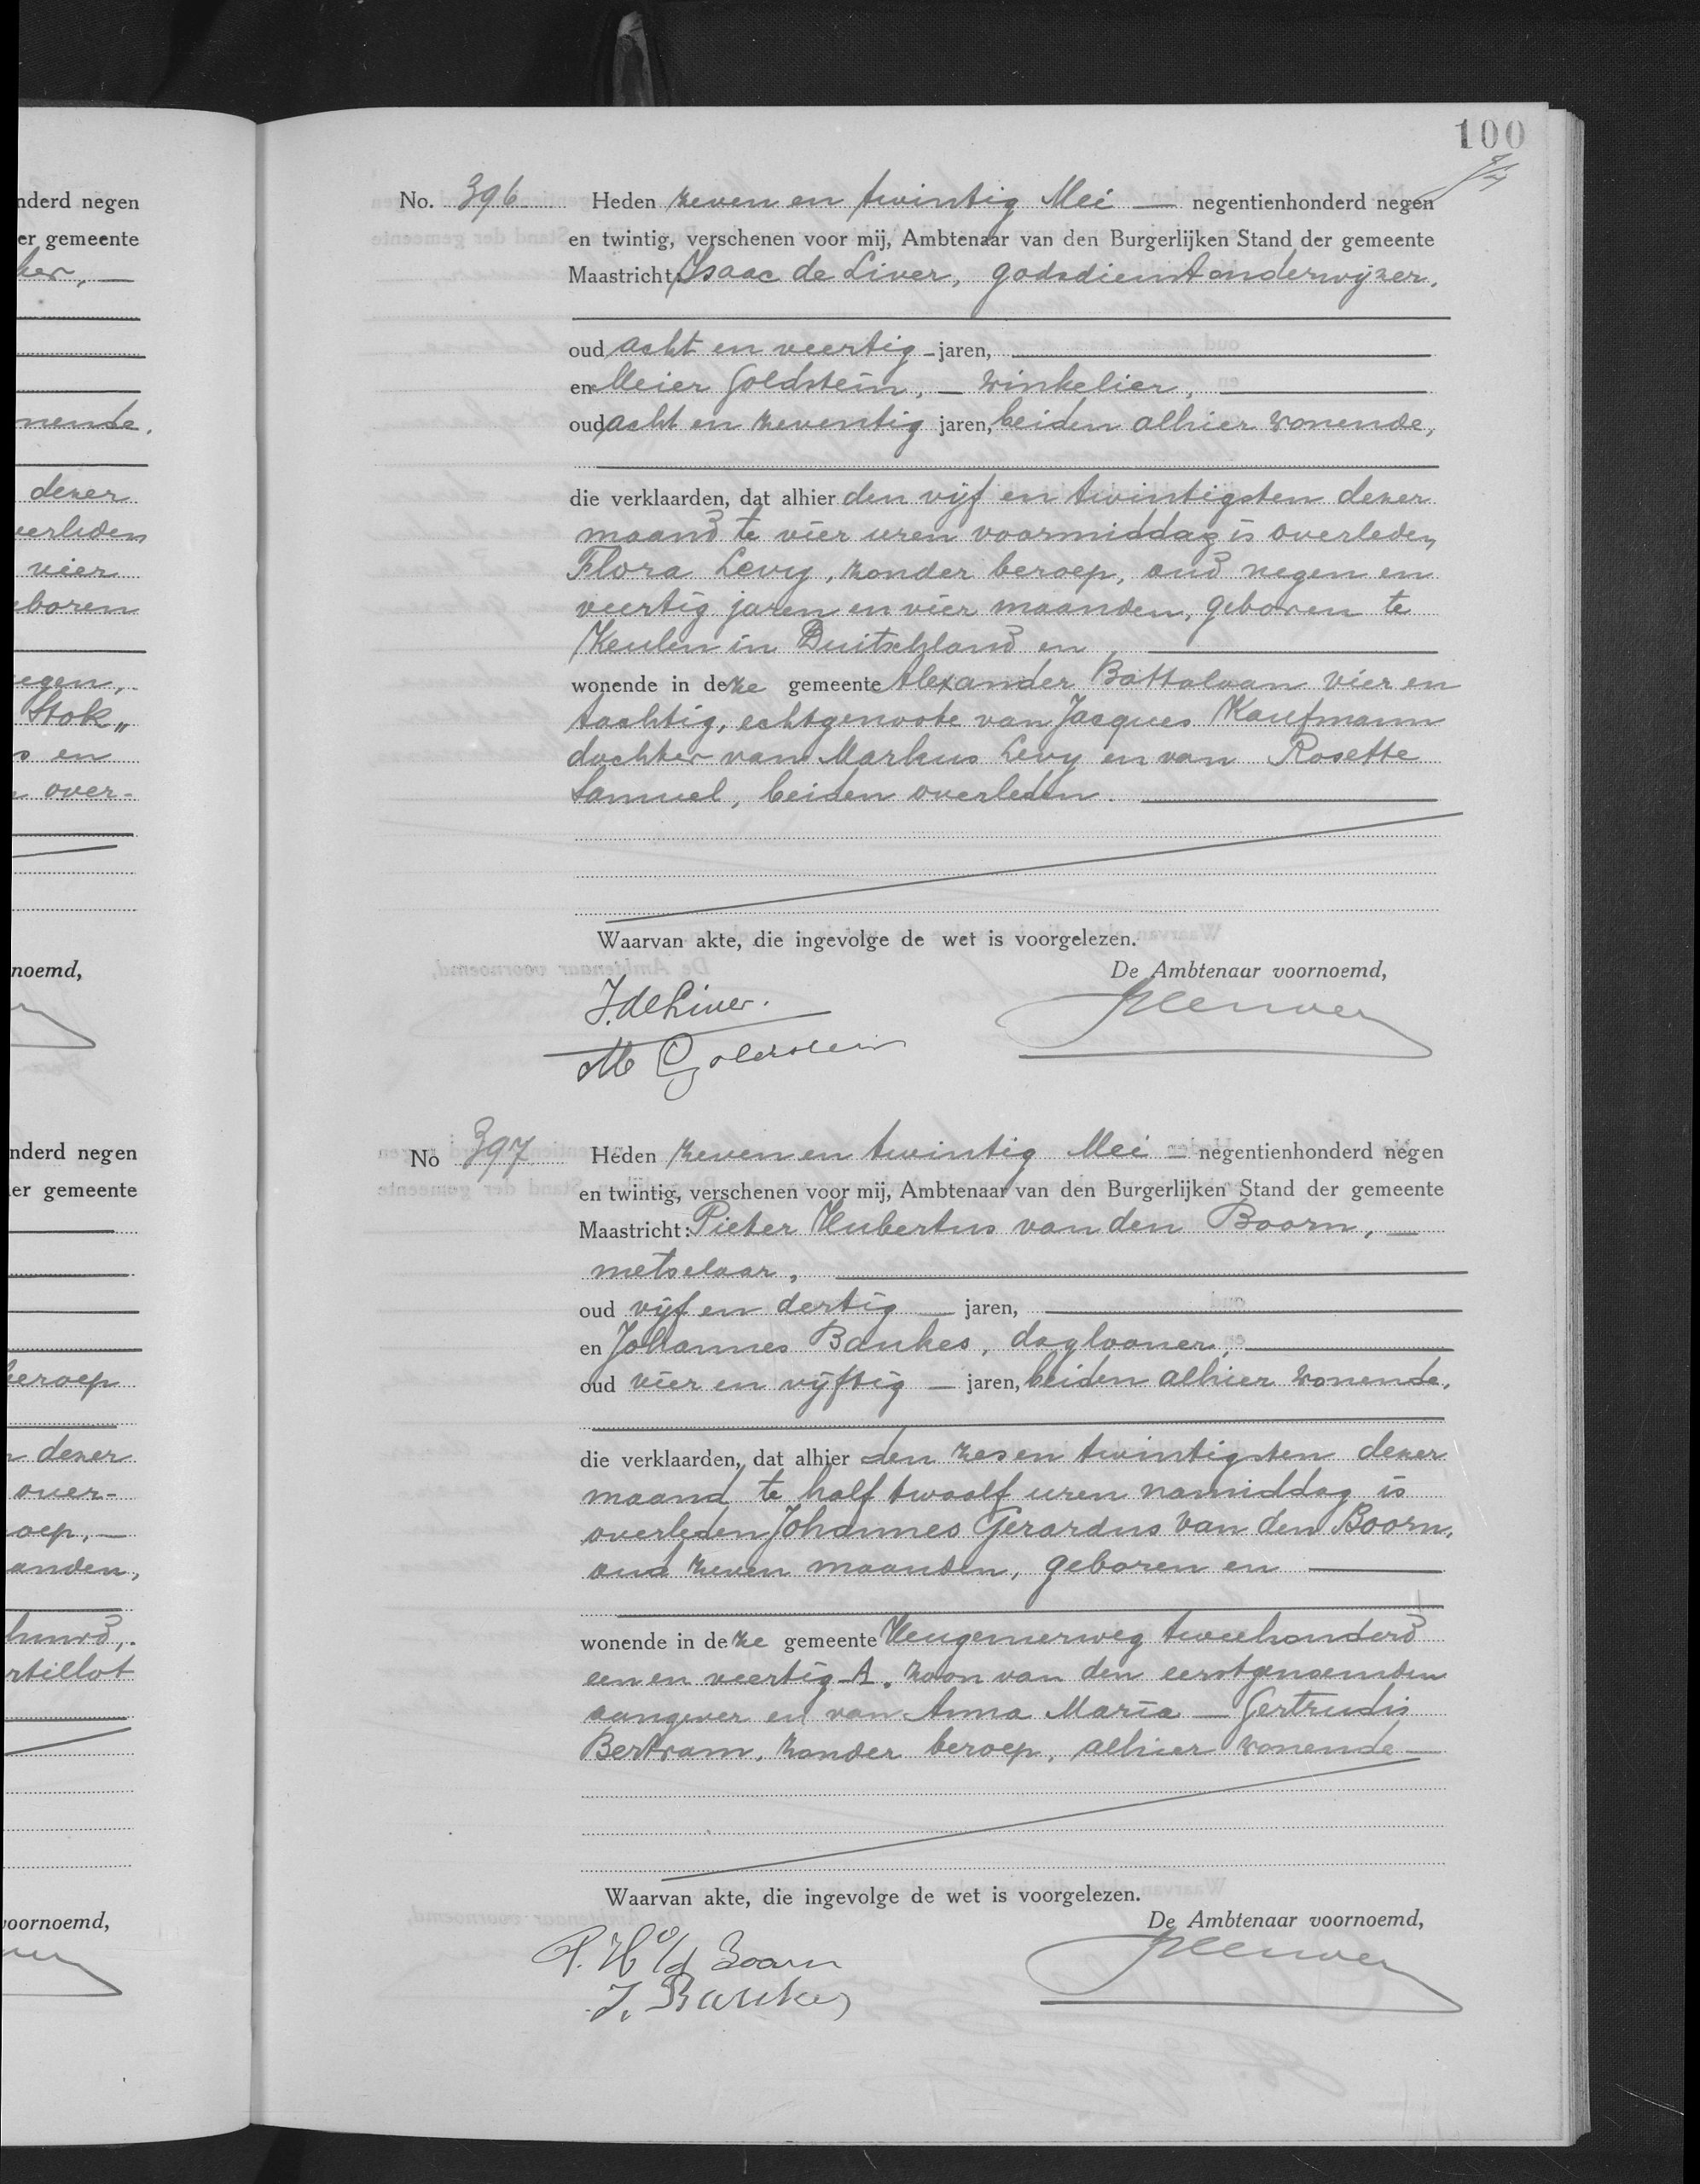 100
nderd negen
er gemeente
ker,
nende.
dezer
verleden
vier
eboren
egen,
Stok„
s en
over-
noemd,
nderd negen
er gemeente
beroep
dezer
over-
oep,
anden,
rtillot
voornoemd,
No. 396 Heden zeven en twintig Mei — negentienhonderd negen
en twintig, verschenen voor mij, Ambtenaar van den Burgerlijken Stand der gemeente
Maastricht: Isaac de Liver, godsdienstonderwijzer,
oud acht en veertig - jaren,
en Meier Goldstein, — winkelier,
oud acht en zeventig jaren, beiden alhier wonende,
die verklaarden, dat alhier den vijf en twintigsten dezer
maand te vier uren voormiddag is overleden
Flora Levy, zonder beroep, oud negen en
veertig jaren en vier maanden, geboren te
Keulen in Duitschland en
wonende in deze gemeente Alexander Battalaan vier en
tachtig, echtgenoote van Jacques Kaufmann
dochter van Markus Levy en van Rosette
Samuel, beiden overleden.
Waarvan akte, die ingevolge de wet is voorgelezen.
De Ambtenaar voornoemd,
I. de Liver.
M Goldstein
No 397 Heden zeven en twintig Mei — negentienhonderd negen
en twintig, verschenen voor mij, Ambtenaar van den Burgerlijken Stand der gemeente
Maastricht: Pieter Hubertus van den Boorn, —
metselaar,
oud vijf en dertig — jaren,
en Johannes Baukes, daglooner,
oud vier en vijftig — jaren, beiden alhier wonende,
die verklaarden, dat alhier den zes en twintigsten dezer
maand te half twaalf uren namiddag is
overleden Johannes Gerardus van den Boorn,
oud zeven maanden, geboren en
wonende in deze gemeente Heugemerweg tweehonderd
een en veertig A. zoon van den eerstgenoemden
aangever en van Anna Maria — Gertrudis
Bertram, zonder beroep, alhier wonende —
Waarvan akte, die ingevolge de wet is voorgelezen.
De Ambtenaar voornoemd,
P. H v/d Boorn
J. Baukes